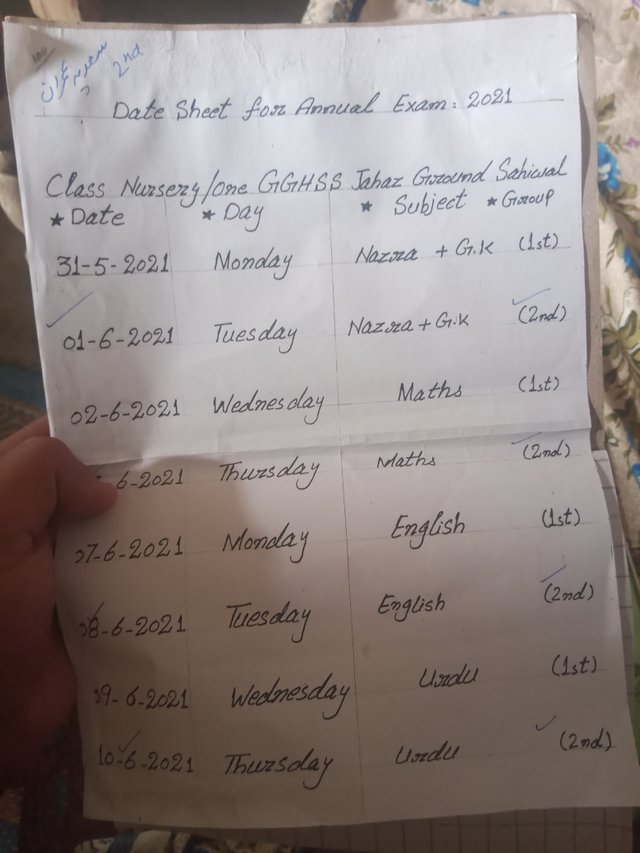 2nd
Date Sheet for Annual Exam: 2021
Class Nursery/one GGHSS Jahaz Ground Sahiwal
★ Date ★ Day ★ Subject ★ Group
31-5-2021 Monday Nazra + G.K (1st)
01-6-2021 Tuesday Nazra + G.k (2nd)
02-6-2021 Wednesday Maths (1st)
6-2021 Thursday Maths (2nd)
07-6-2021 Monday English (1st)
08-6-2021 Tuesday English (2nd)
09-6-2021 Wednesday Urdu (1st)
10-6-2021 Thursday Urdu (2nd)